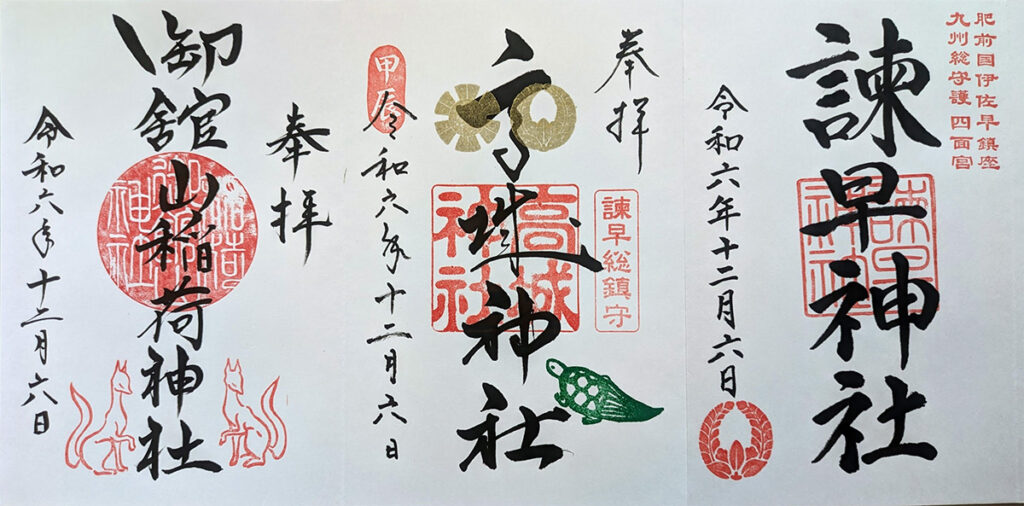 肥前国伊佐早鎮座
九州総守護 四面宮
諫早神社
諫早神社
令和六年十二月六日
奉拝
諫早総鎮守
高城神社
高城神社
甲辰
令和六年十二月六日
奉拝
御館山稲荷神社
令和六年十二月六日